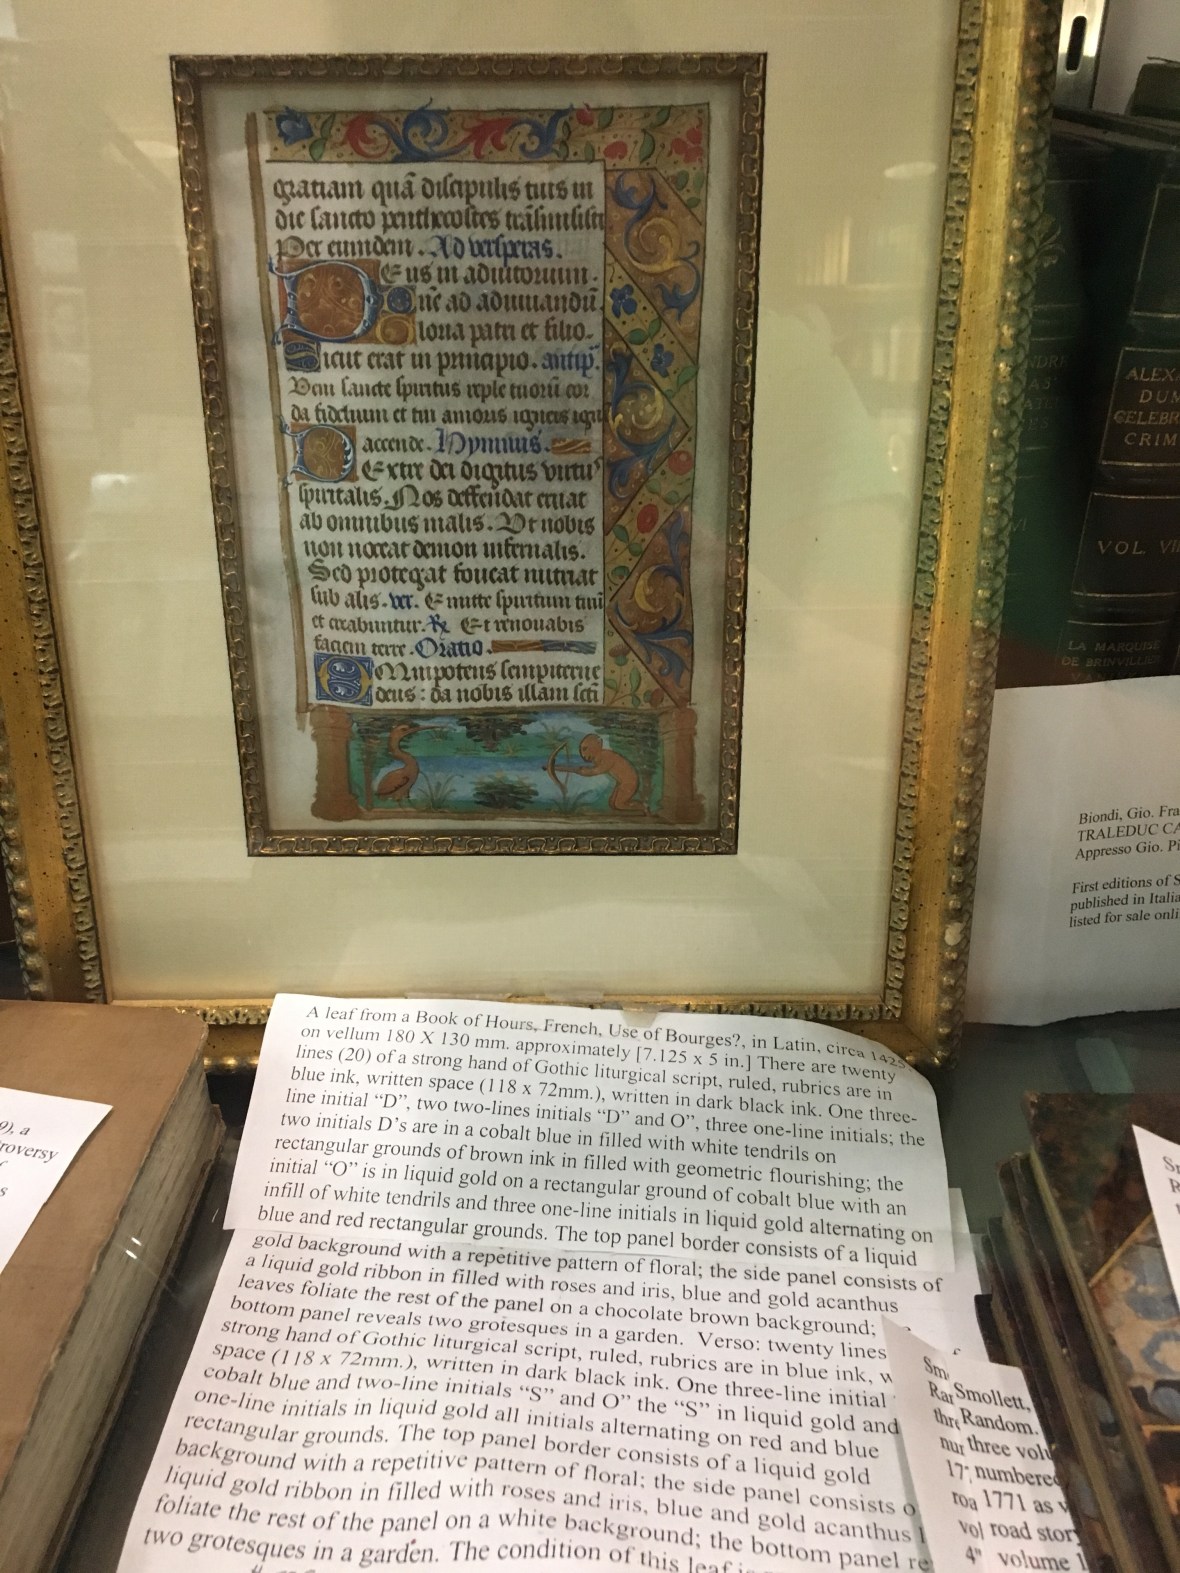 gratiam quā discipulis tuis in
die sancto penthecostes trāsmisisti
Per eumdem. Ad vesperas.
DEus in adiutorium.
ne ad adiuuandū.
Gloria patri et filio.
Sicut erat in principio. antip̄.
Veni sancte spiritus reple tuorū cor
da fidelium et tui amoris igneis igni
accende. Hymnus.
DExtre dei digitus virtu
spiritalis. Nos deffendat eruat
ab omnibus malis. Vt nobis
non noceat demon infernalis.
Sed protegat foueat nutriat
sub alis. ver. Emitte spiritum tuū
et creabuntur. ℞ Et renouabis
faciem terre. Oratio.
OMnipotens sempiterne
deus: da nobis illam scti
ALEXA
DUM
CELEBR
CRIM
VOL. VII
LA MARQUISE
DE BRINVILLIE
Biondi, Gio. Fra
TRALEDUC CA
Appresso Gio. Pi
First editions of S
published in Italia
listed for sale onli
A leaf from a Book of Hours, French, Use of Bourges?, in Latin, circa 1425,
on vellum 180 X 130 mm. approximately [7.125 x 5 in.] There are twenty
lines (20) of a strong hand of Gothic liturgical script, ruled, rubrics are in
blue ink, written space (118 x 72mm.), written in dark black ink. One three-
line initial “D”, two two-lines initials “D” and O”, three one-line initials; the
two initials D’s are in a cobalt blue in filled with white tendrils on
rectangular grounds of brown ink in filled with geometric flourishing; the
initial “O” is in liquid gold on a rectangular ground of cobalt blue with an
infill of white tendrils and three one-line initials in liquid gold alternating on
blue and red rectangular grounds. The top panel border consists of a liquid
gold background with a repetitive pattern of floral; the side panel consists of
a liquid gold ribbon in filled with roses and iris, blue and gold acanthus
leaves foliate the rest of the panel on a chocolate brown background;
bottom panel reveals two grotesques in a garden. Verso: twenty lines
strong hand of Gothic liturgical script, ruled, rubrics are in blue ink, w
space (118 x 72mm.), written in dark black ink. One three-line initial
cobalt blue and two-line initials “S” and O” the “S” in liquid gold and
one-line initials in liquid gold all initials alternating on red and blue
rectangular grounds. The top panel border consists of a liquid gold
background with a repetitive pattern of floral; the side panel consists o
liquid gold ribbon in filled with roses and iris, blue and gold acanthus l
foliate the rest of the panel on a white background; the bottom panel re
two grotesques in a garden. The condition of this leaf is
9), a
roversy
f
s
Sm
Rar
thre
nur
17
roa
vol
4"
Smollett,
Random.
three volu
numbered
1771 as v
road story
volume 1